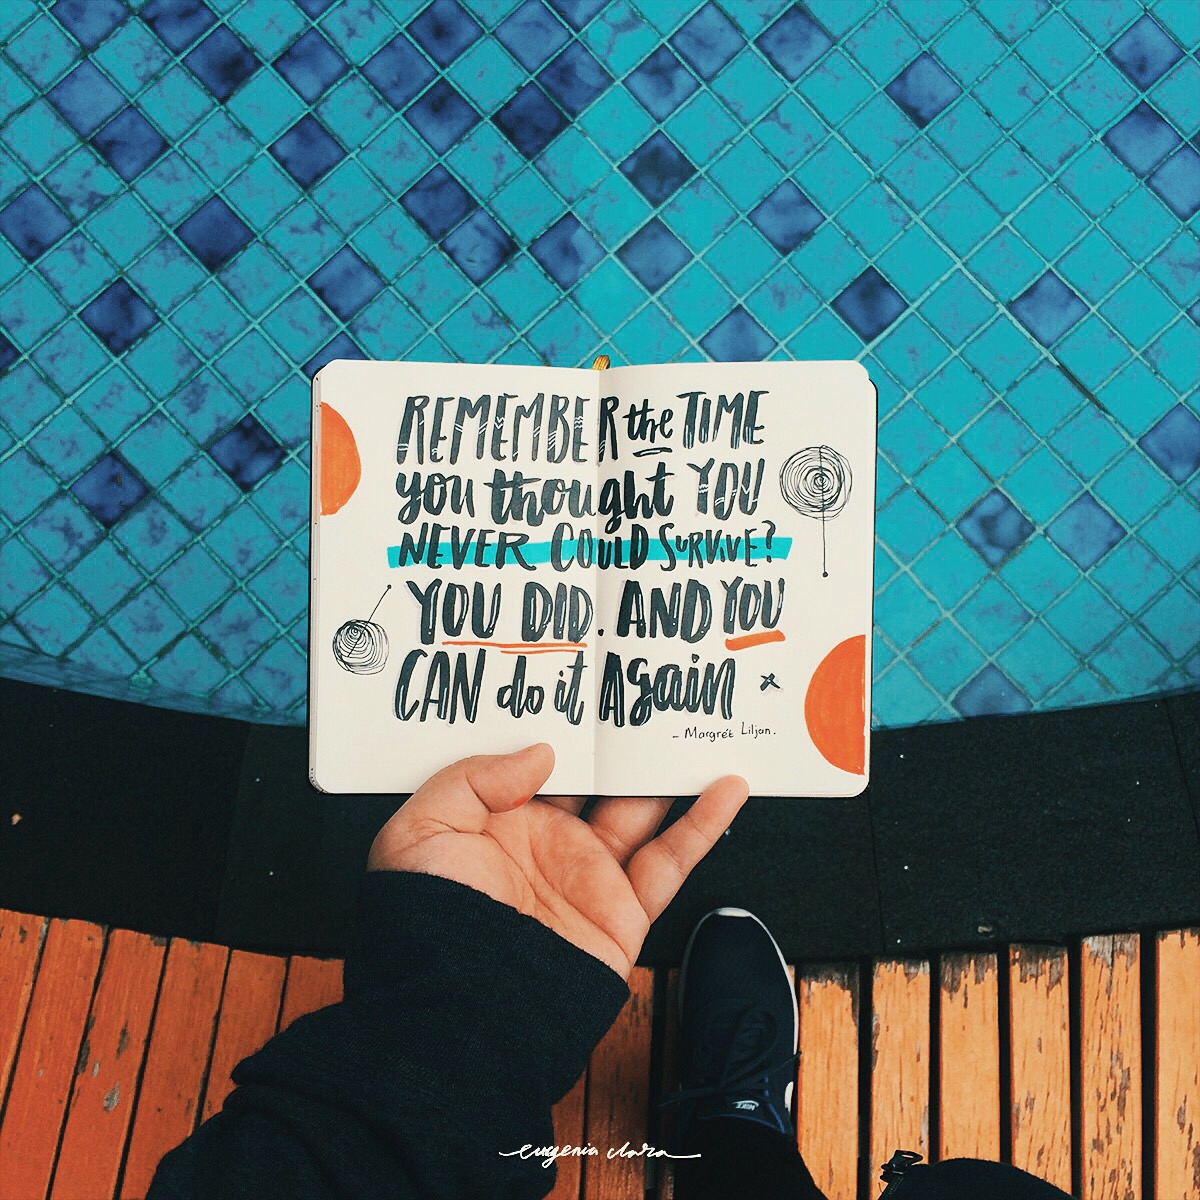 REMEMBER the TIME
you thought YOU
NEVER COULD SURVIVE?
YOU DID. AND YOU
CAN do it AGain
- Margrét Liljan.
NIKE
eugenia clara